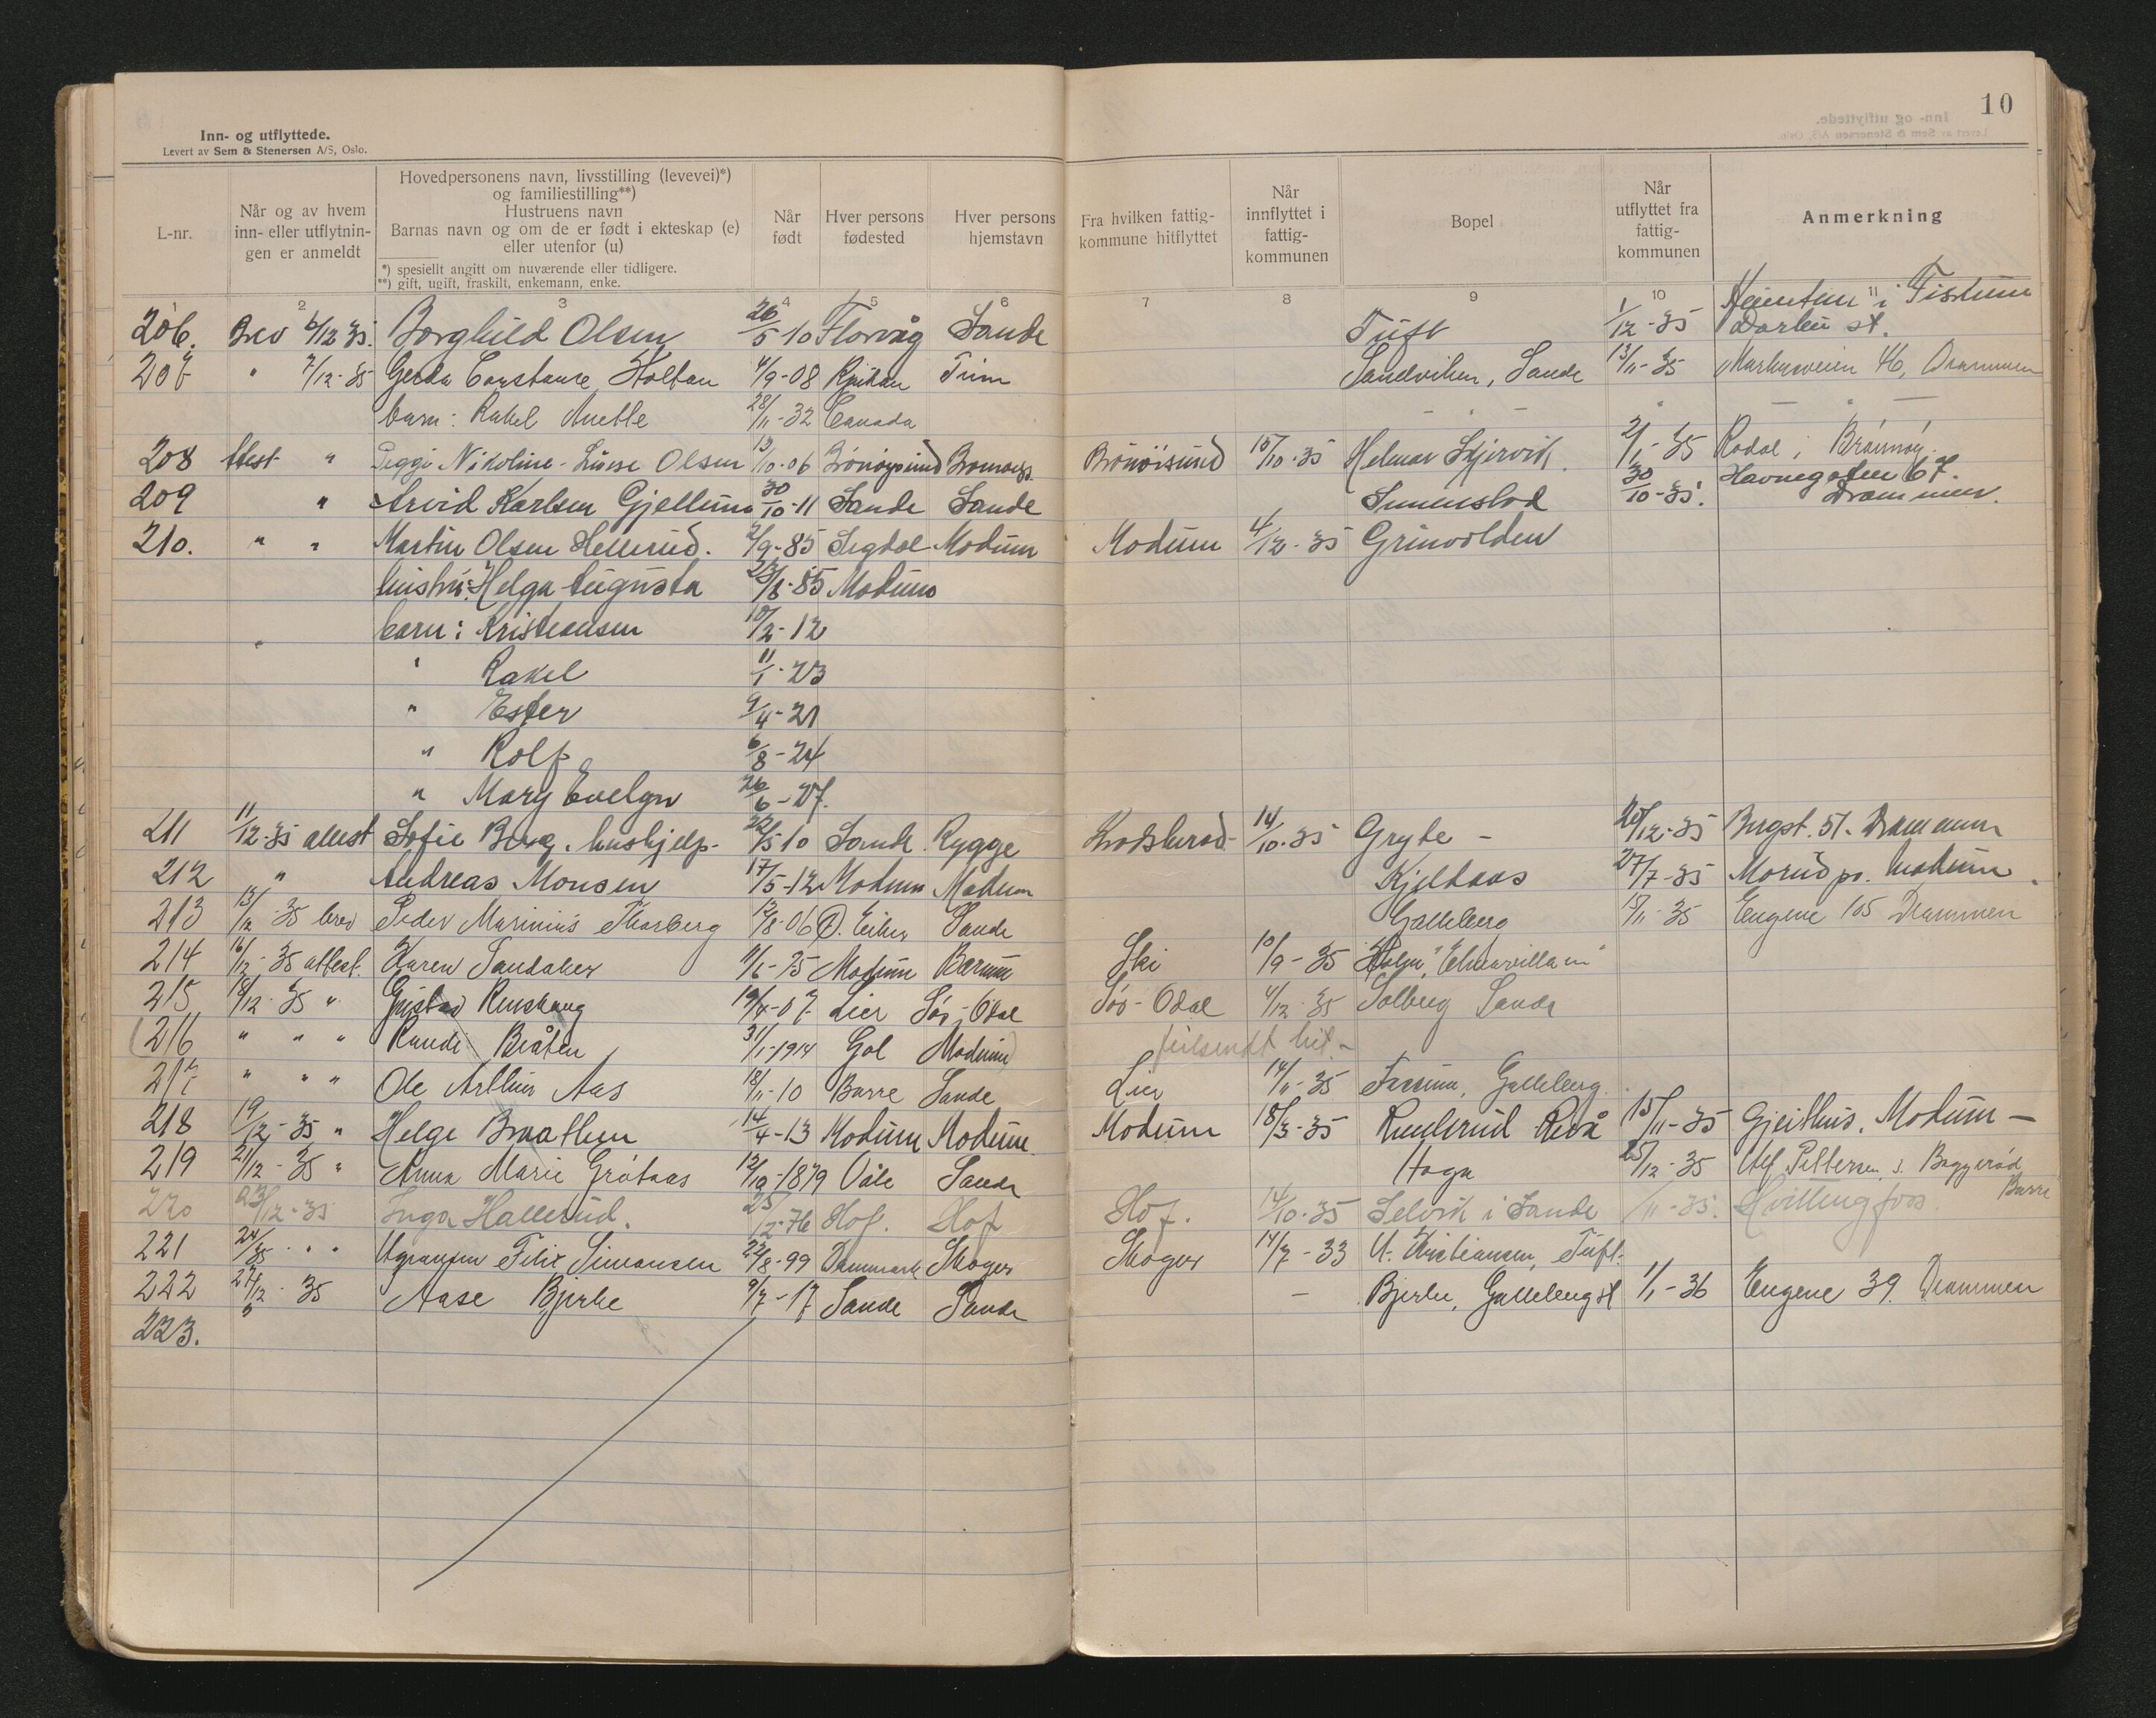 10
Inn- og utflyttede.
Levert av Sem & Stenersen A/S, Oslo.
L-nr.
Når og av hvem inn- eller utflytningen er anmeldt
Hovedpersonens navn, livsstilling (levevei)*) og familiestilling**)
Hustruens navn
Barnas navn og om de er født i ekteskap (e) eller utenfor (u)
*) spesiellt angitt om nuværende eller tidligere.
**) gift, ugift, fraskilt, enkemann, enke.
Når født
Hver persons fødested
Hver persons hjemstavn
Fra hvilken fattigkommune hitflyttet
Når innflyttet i fattigkommunen
Bopel
Når utflyttet fra fattigkommunen
Anmerkning
2 3 4 5 6 7 8 9 10 11
206. Brev 6/12 35. Borghild Olsen 26/5-10 Florvåg Sande Tuft 1/12-35 i Fiskum Darbu st.
207 " 7/12-35 Gerda Constance Holtan 4/9-08 Rjukan Tinn Sandviken, Sande 13/11-35 46, Drammen
barn: Rakel Anette 28/11-32 Canada
208 Attest " Nikoline Olsen 13/10-06 Brönöysund Brönöysund 10-35 Helmar Skjervik 35 Rodal i Brönnöy
209 " Arvid Karlsen Gjellum 30/10-11 Sande Sande 30/10-35. Havnegaten 67. Drammen.
210. " " Martin Olsen Hellerud. 2/9-85 Sigdal Modum Modum 4/12-35 Grinvolden
hustru: Helga Augusta 85 Modum
barn: Kristiansen 10/2-12
" Rakel 11/1-23
" Ester 9/4-21
" Rolf 6/8-24
" Mary Evelyn 26/6-27.
211 11/12-35 attest Sofie Berg. hushjelp. 22/5 10 Sande Rygge 14/10-35 Gryte - 12-35 51. Drammen
212 " Andreas Monsen 17/5-12 Modum Modum Kjeldaas 27/7-35 Morud pr. Modum.
213 13/12-35 brev Peder Marinius Thorberg 12/8-06 Ø. Eiker Sande Galleberg 15/11-35 Engene 105 Drammen
214 16/12-35 attest. Karen Sandaker 11/6-75 Modum Bærum Ski 10/9-35 Holm,
215 18/12-35 " Gustav 19/4-07 Lier Sör-Odal Sör-Odal 4/12-35 Solberg Sande
(216 " " " Randi Bråten 31/1-1914 Gol Modum) tilsendt hit.-
217 " " " Ole Arthur Aas 18/11-10 Borre Sande Lier 14/11-35 Galleberg
218 19/12-35 " Helge Braathen 14/4-13 Modum Modum. Modum 18/3-35 Revå 15/11-35 Gjeithus, Modum -
219 21/12-35 " Anna Marie Gråtaas 12/10-1879 Våle Sande Haga 25/12-35 Alf Pettersen, Borre
220 23/12-35 Inga Hallerud. 25/12-76 Hof. Hof Hof. 14/10-35 Selvik i Sande /11-35. Hvittingfoss
221 24/35 " " Felix Simonsen 22/8-99 Danmark Skoger Skoger 14/7-33 Kristiansen, Tuft.
222 27/12 35 Aase Bjerke 9/7-17 Sande Sande - Bjerke, Galleberg st 1/1-36 Engene 39. Drammen
223.